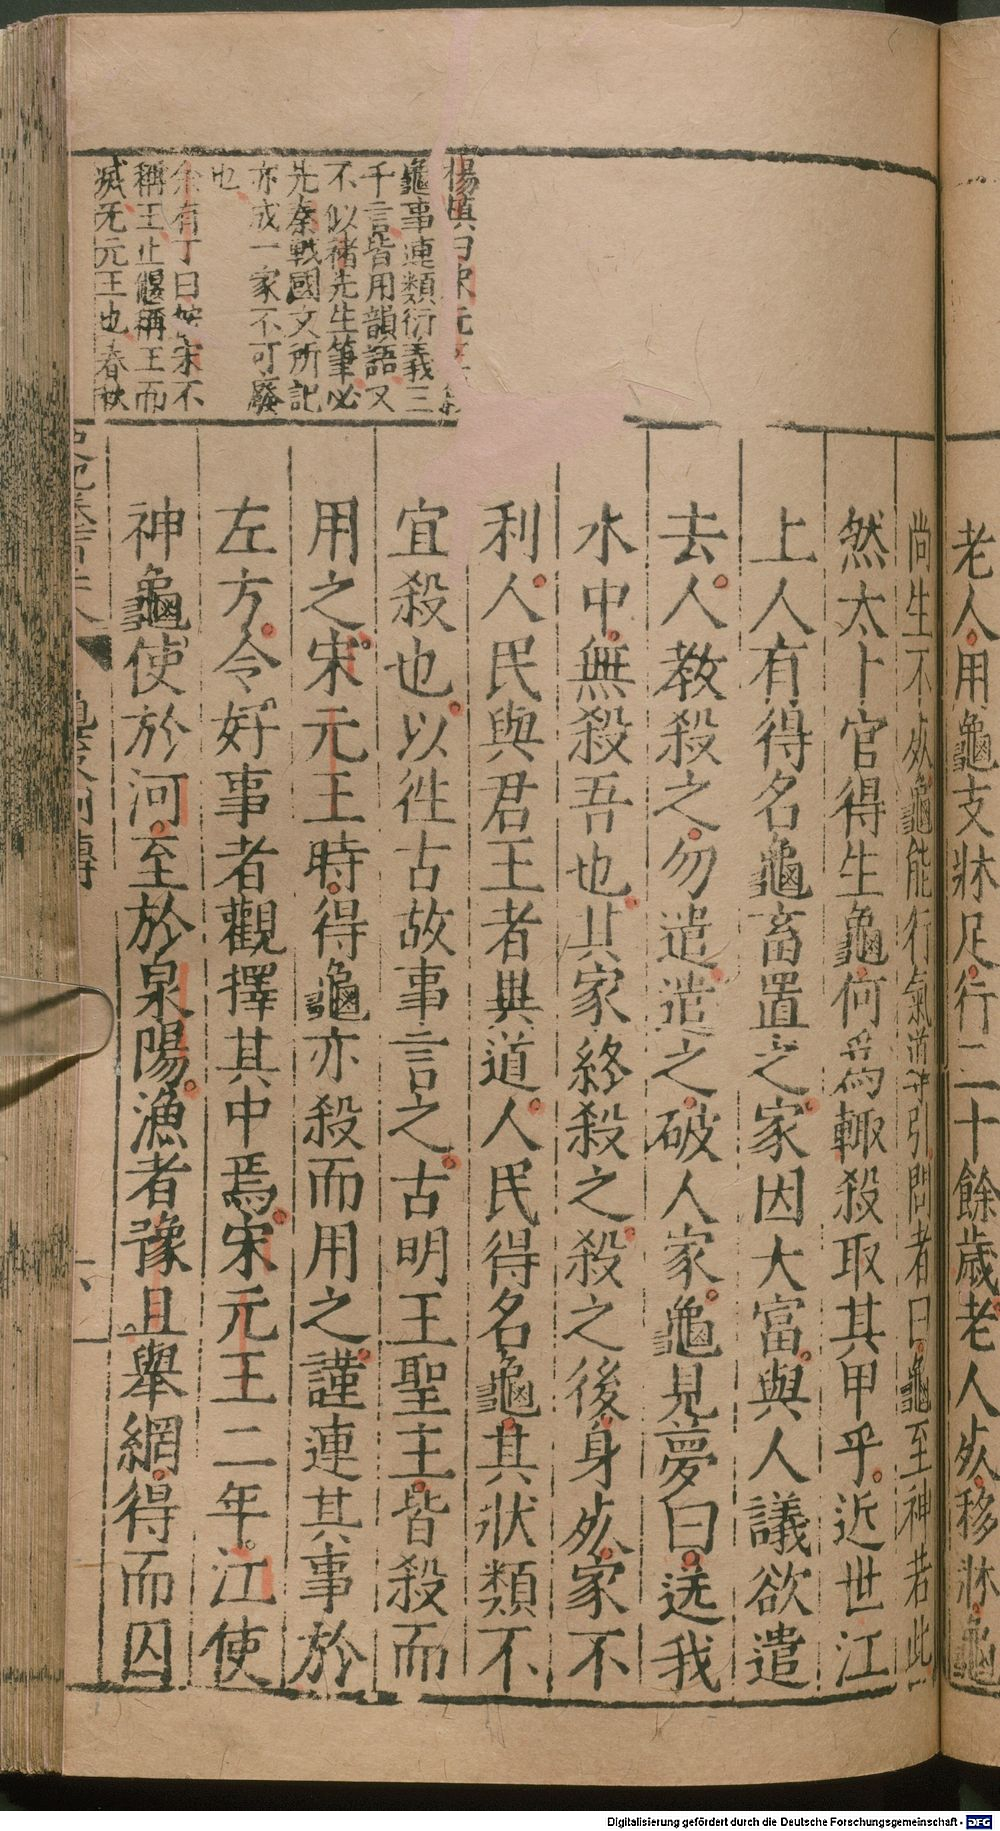 老人用龜支牀足行二十餘歲老人死移牀龜
尚生不死龜能行氣導引問者曰龜至神若此
然太卜官得生龜何爲輙殺取其甲乎近世江
上人有得名龜畜置之家因大富與人議欲遣
去人教殺之勿遣遣之破人家龜見夢曰送我
水中無殺吾也其家終殺之殺之後身死家不
利人民與君王者異道人民得名龜其狀類不
宜殺也以徃古故事言之古明王聖主皆殺而
用之宋元王時得龜亦殺而用之謹連其事於
左方令好事者觀擇其中焉宋元王二年江使
神龜使於河至於泉陽漁者豫且舉網得而囚
楊慎曰宋元王
龜事連類衍義三
千言皆用韻語又
不似禇先生筆必
先秦戰國文所記
亦成一家不可廢
也
余有丁曰按宋不
稱王止偃稱王而
滅无元王也春秋
龜策列傳
Digitalisierung gefördert durch die Deutsche Forschungsgemeinschaft - DFG